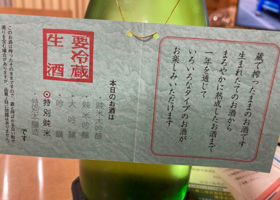 蔵で搾ったままのお酒です
生まれたてのお酒から
まろやかに熟成したお酒まで
一年を通じて
いろいろなタイプのお酒が
お楽しみいただけます
本日のお酒は
純米大吟醸
純米吟醸
大吟醸
吟醸
特別純米
特別本醸造
です
要冷蔵
生酒